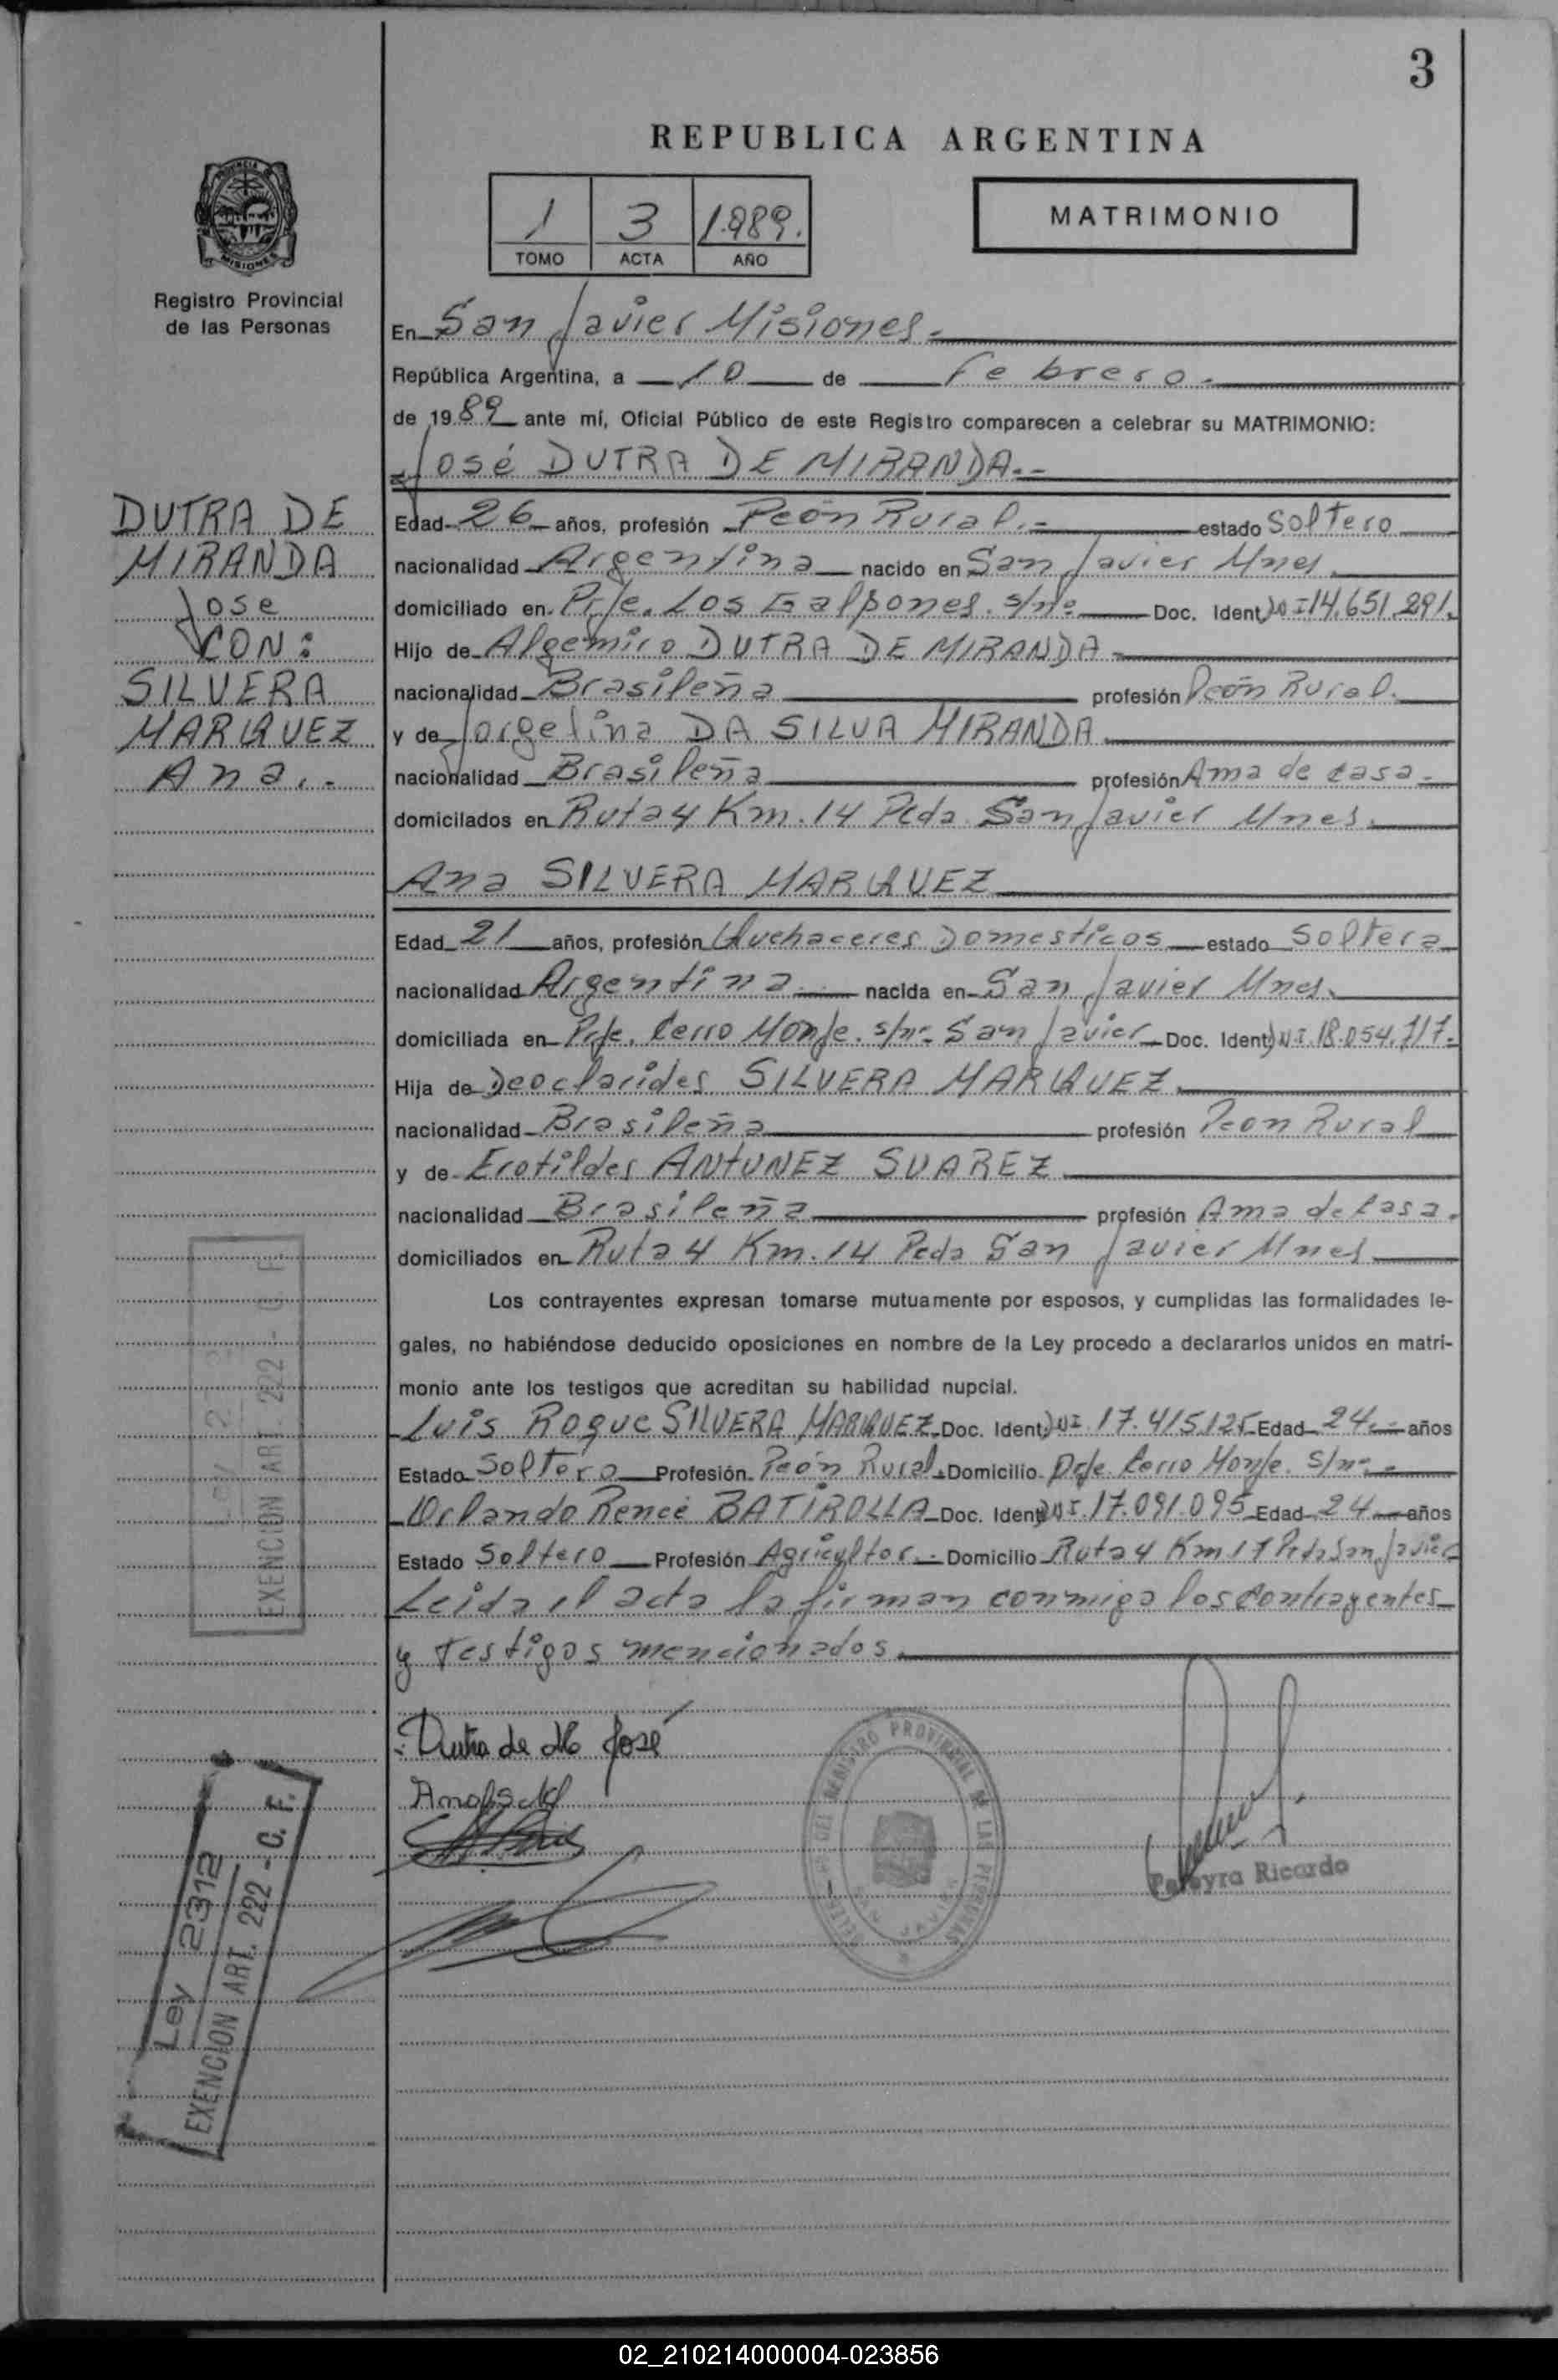 3
REPUBLICA ARGENTINA
1 3 1.989.
TOMO ACTA AÑO
MATRIMONIO
PROVINCIA DE
MISIONES
Registro Provincial
de las Personas
En San Javier Misiones.
República Argentina, a 10 de Febrero.
de 1989 ante mí, Oficial Público de este Registro comparecen a celebrar su MATRIMONIO:
José DUTRA DE MIRANDA.-
DUTRA DE
MIRANDA
Jose
CON:
SILVERA
MARQUEZ
Ana.-
Edad 26 años, profesión Peón Rural.- estado Soltero
nacionalidad Argentina nacido en San Javier Mnes.
domiciliado en Pje. Los Galpones. s/nº Doc. Ident. DNI 14.651.291.
Hijo de Algemiro DUTRA DE MIRANDA
nacionalidad Brasileña profesión Peón Rural.
y de Jorgelina DA SILVA MIRANDA
nacionalidad Brasileña profesión Ama de casa.
domicilados en Ruta 4 Km. 14 Pcda San Javier Mnes.
Ana SILVERA MARQUEZ
Edad 21 años, profesión Quehaceres Domesticos estado Soltera
nacionalidad Argentina nacida en San Javier Mnes.
domiciliada en Pje. Cerro Monje. s/nº San Javier Doc. Ident. DNI. 18.054.717.
Hija de Deoclarides SILVERA MARQUEZ
nacionalidad Brasileña profesión Peon Rural
y de Erotildes ANTUNEZ SUAREZ
nacionalidad Brasileña profesión Ama de Casa.
domiciliados en Ruta 4 Km. 14 Pcda San Javier Mnes
Los contrayentes expresan tomarse mutuamente por esposos, y cumplidas las formalidades le-
gales, no habiéndose deducido oposiciones en nombre de la Ley procedo a declararlos unidos en matri-
monio ante los testigos que acreditan su habilidad nupcial.
Luis Roque SILVERA MARQUEZ Doc. Ident. DNI. 17.415.125 Edad 24.- años
Estado Soltero Profesión Peón Rural Domicilio Pje Cerro Monje. s/nº -
Orlando Reneé BATIROLLA Doc. Ident. DNI. 17.091.095 Edad 24 años
Estado Soltero Profesión Agricultor.- Domicilio Ruta 4 Km 17 Pcda San Javier
Leida el acta la firman conmigo los contrayentes
y testigos mencionados
EXENCION ART. 222 - C. F.
Dutra de M José
REGISTRO PROVINCIAL DE LAS PERSONAS
SAN JAVIER
Pereyra Ricardo
Ley 2312
EXENCION ART. 222 - C. F.
02_210214000004-023856